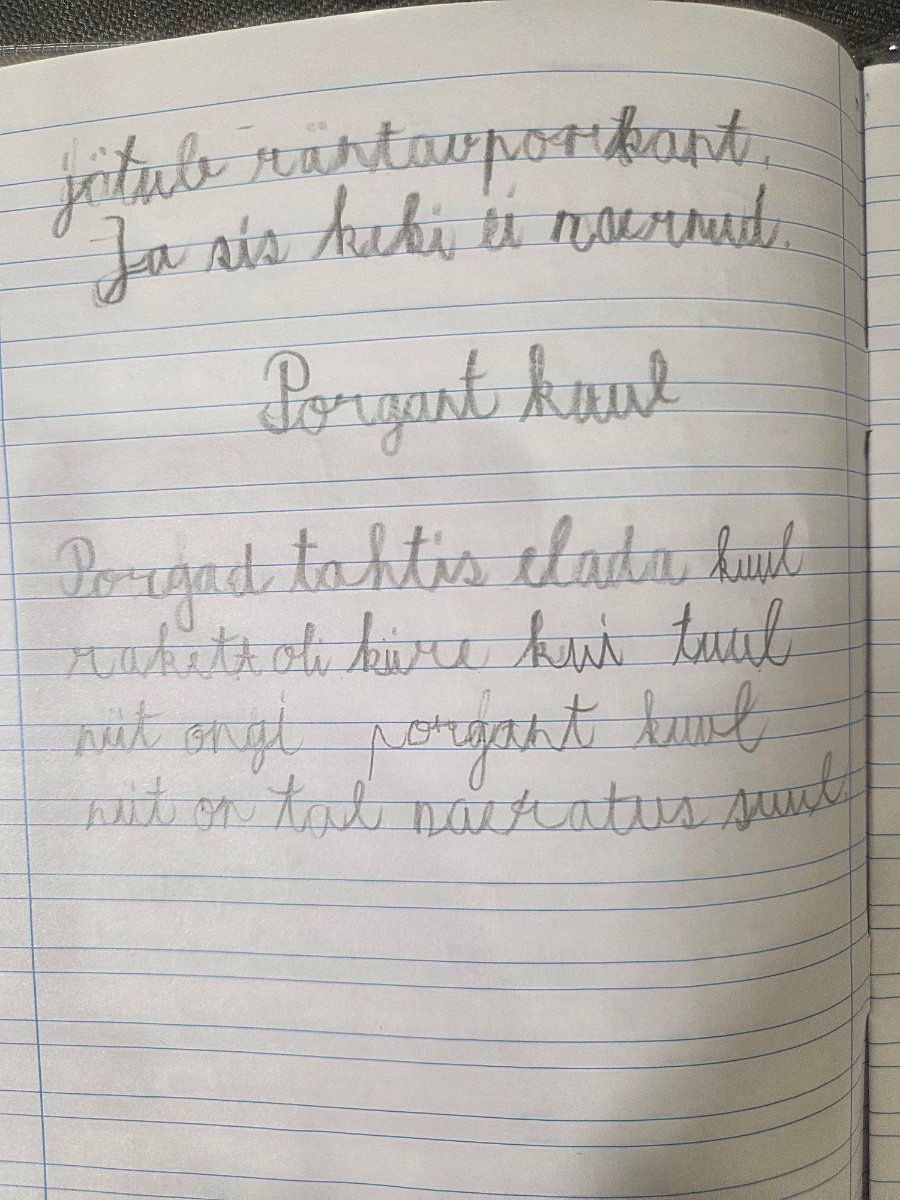 jätule räntavporkant.
Ja sis keki ei naernud.
Porgant kuul
Porgad tahtis elada kuul
rakett oli küre kui tuul
nüt ongi porgant kuul
nüt on tal naeratus suul.